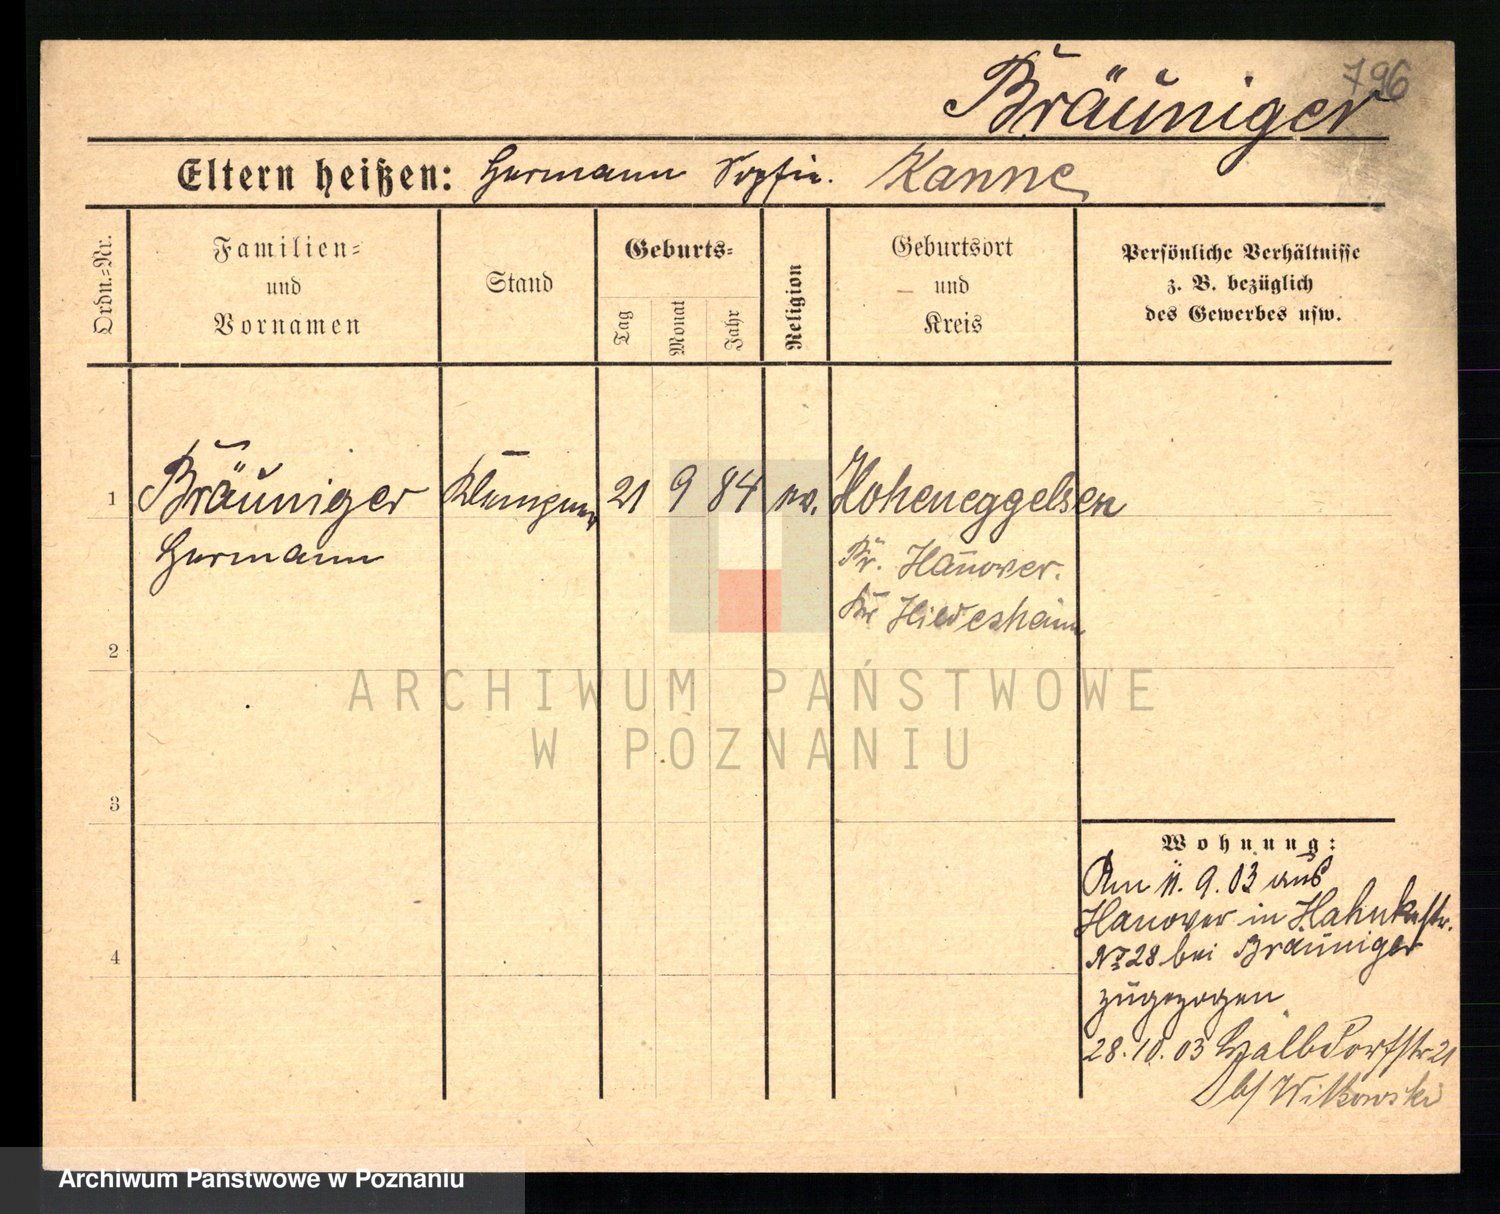 796
Bräuniger
Eltern heißen: Hermann Sophie. Kanne
Ordn.-Nr.
Familien-
und
Vornamen
Stand
Geburts-
Tag
Monat
Jahr
Religion
Geburtsort
und
Kreis
Persönliche Verhältnisse
z. B. bezüglich
des Gewerbes usw.
1 Bräuniger Klempner 21 9 84 ev. Hoheneggelsen
Hermann
Pr. Hanover.
Kr Hildesheim
2
3
4
ARCHIWUM PAŃSTWOWE
W POZNANIU
Wohnung:
Am 11. 9. 03 aus
Hanover in Hahnkestr.
No 28 bei Bräuniger
zugezogen
28. 10. 03 Halbdorfstr 21
b/ Witkowski
Archiwum Państwowe w Poznaniu